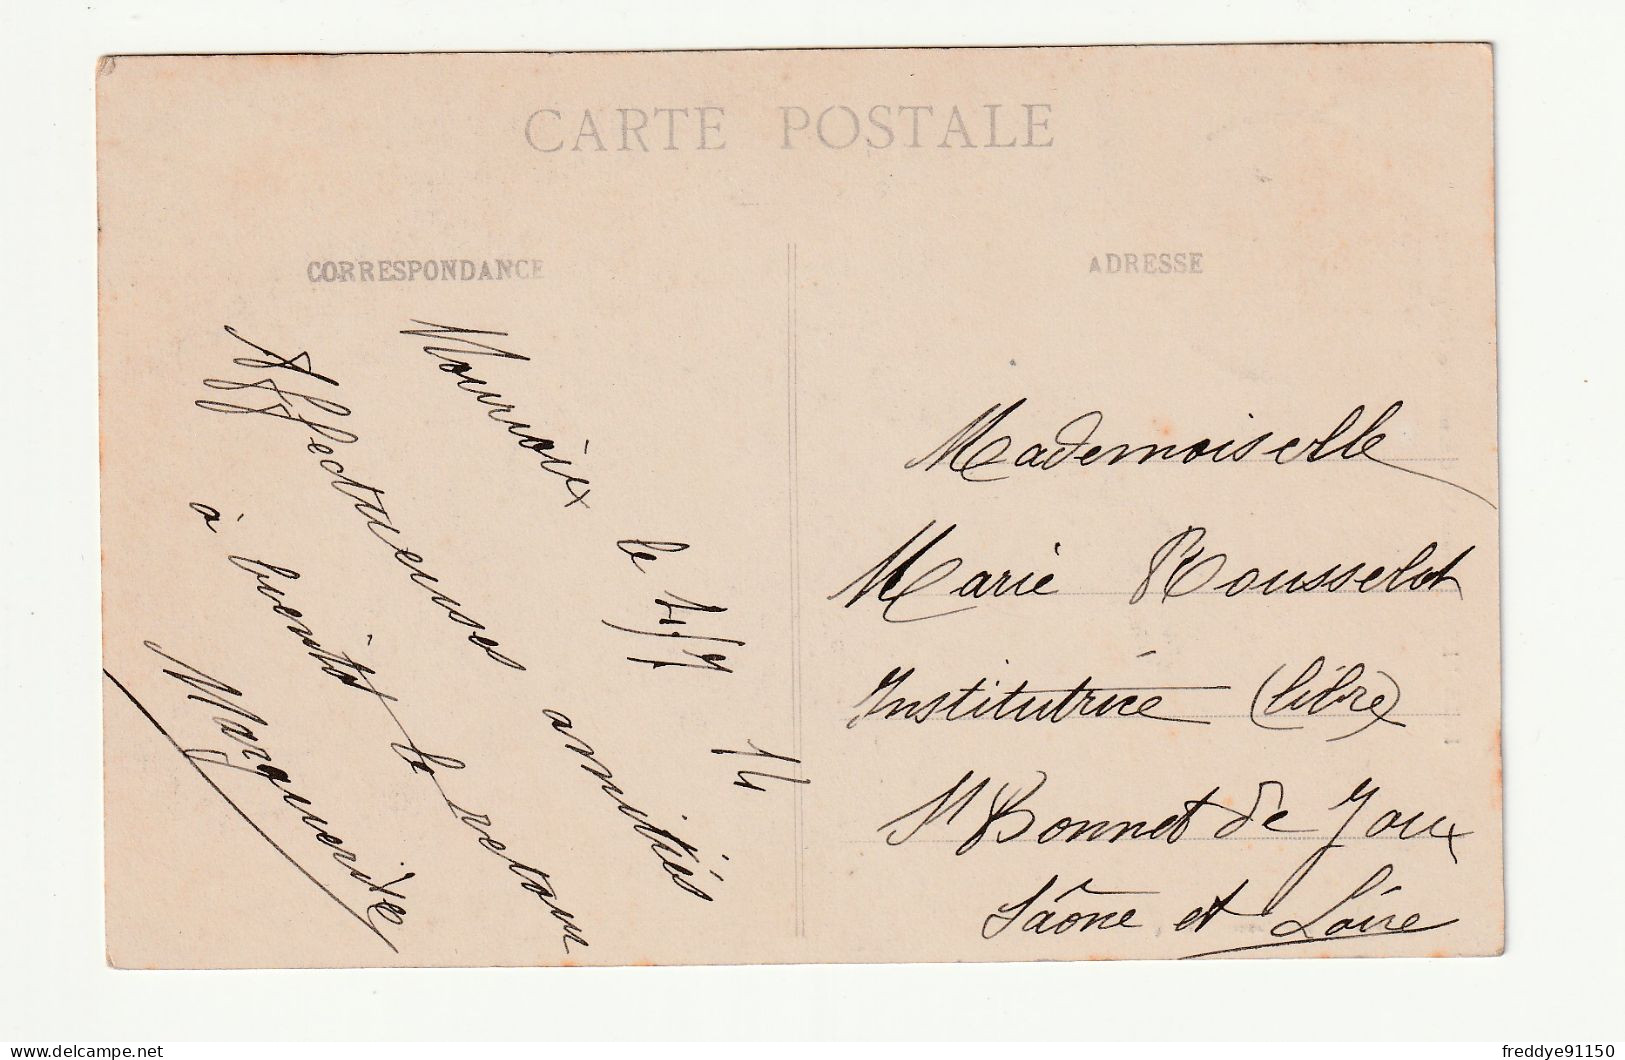 CARTE POSTALE
CORRESPONDANCE
ADRESSE
le 4/7 14
Affectueuses amitiés
à bientôt le retour
Marguerite
Mademoiselle
Marie Rousselot
Institutrice (libre)
St Bonnet de Joux
Saône et Loire
delcampe.net
freddye91150